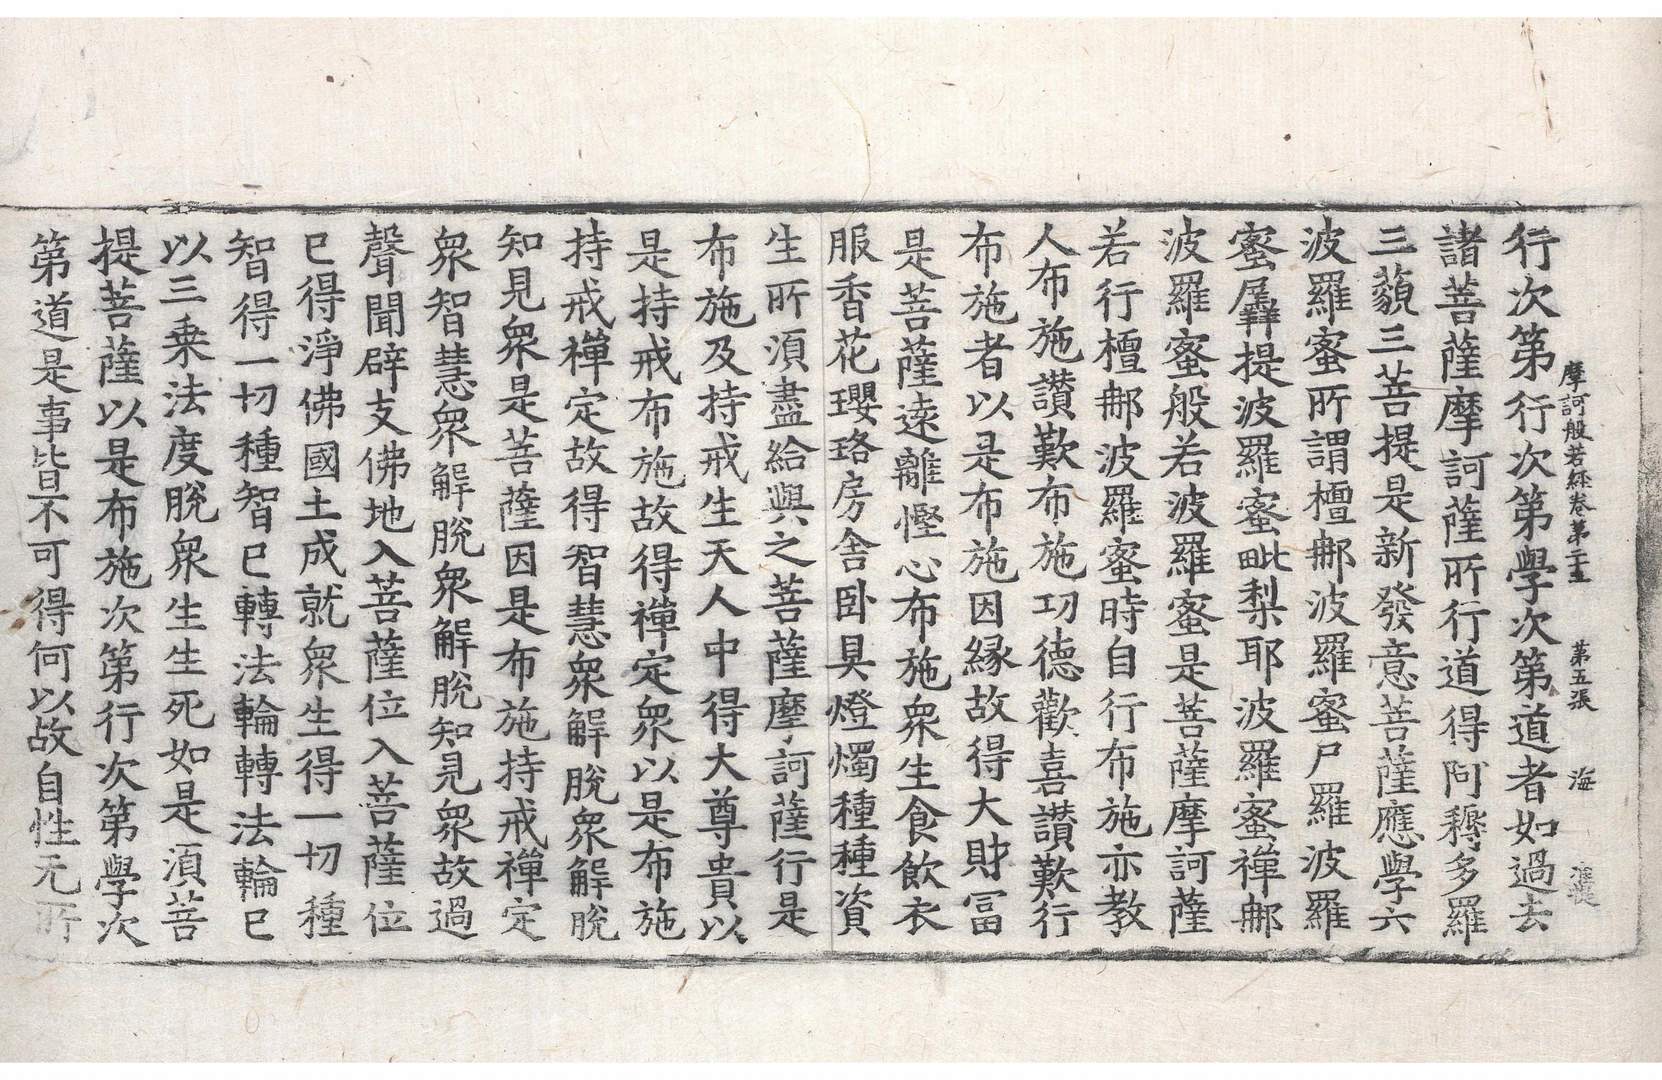 摩訶般若經卷第二十五　第五張　海
行次第行次第學次第道者如過去
諸菩薩摩訶薩所行道得阿耨多羅
三藐三菩提是新發意菩薩應學六
波羅蜜所謂檀那波羅蜜尸羅波羅
蜜羼提波羅蜜毗梨耶波羅蜜禪那
波羅蜜般若波羅蜜是菩薩摩訶薩
若行檀那波羅蜜時自行布施亦教
人布施讚歎布施功德歡喜讚歎行
布施者以是布施因緣故得大財冨
是菩薩遠離慳心布施衆生食飲衣
服香花瓔珞房舍臥具燈燭種種資
生所須盡給與之菩薩摩訶薩行是
布施及持戒生天人中得大尊貴以
是持戒布施故得禪定衆以是布施
持戒禪定故得智慧衆解脫衆解脫
知見衆是菩薩因是布施持戒禪定
衆智慧衆解脫衆解脫知見衆故過
聲聞辟支佛地入菩薩位入菩薩位
已得淨佛國土成就衆生得一切種
智得一切種智已轉法輪轉法輪已
以三乗法度脫衆生生死如是須菩
提菩薩以是布施次第行次第學次
第道是事皆不可得何以故自性无所